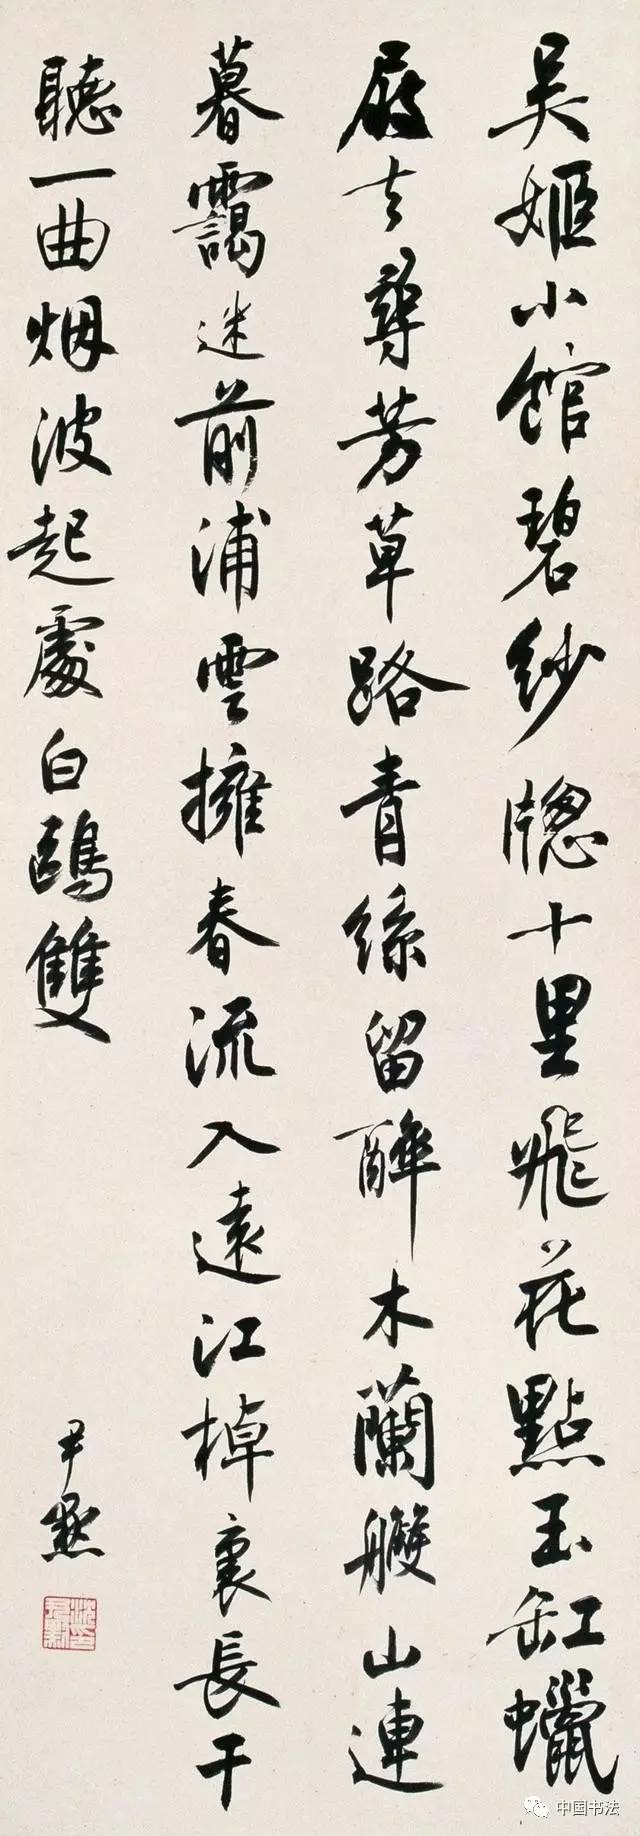 吴姬小館碧紗牕十里飛花點玉缸蠟
屐去尋芳草路青絲留醉木蘭艭山連
暮靄迷前浦雲擁春流入遠江棹裏長干
聽一曲烟波起處白鷗雙
尹默
中国书法